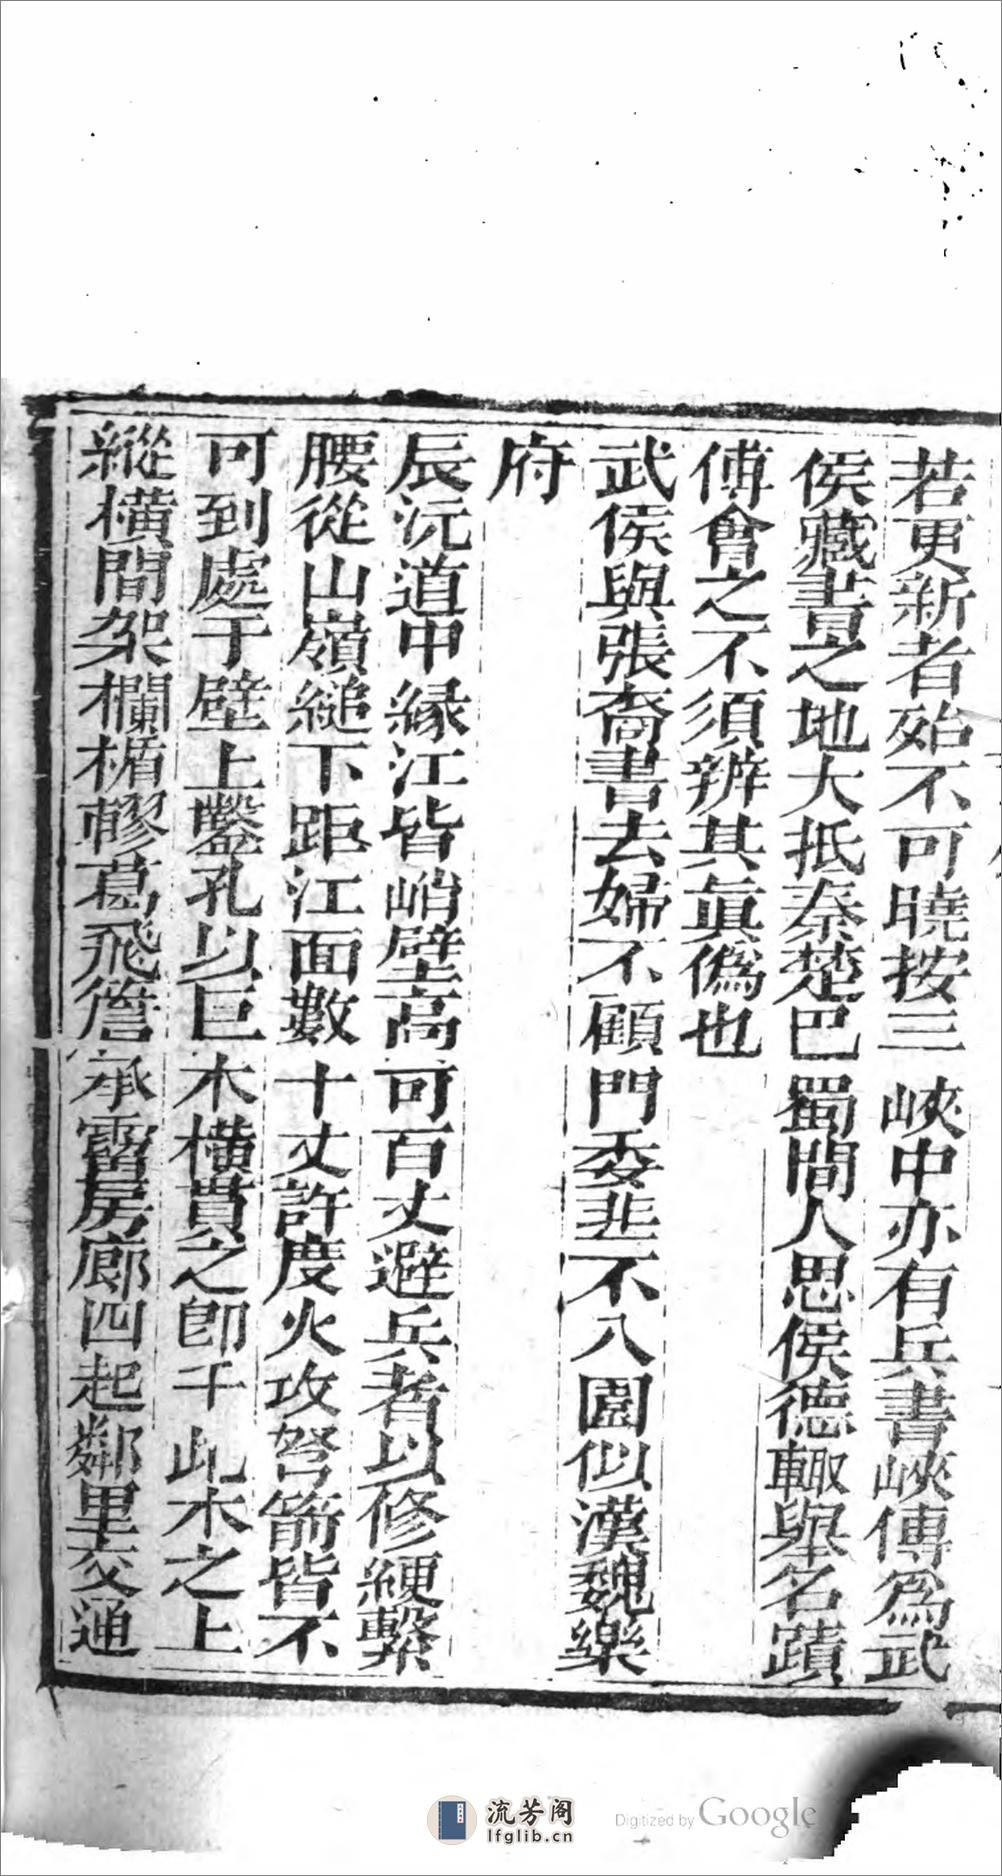 若更新者殆不可曉按三峽中亦有兵書峽傳爲武
侯藏書之地大抵秦楚巴蜀間人思侯德輒舉名蹟
傅會之不須辨其眞僞也
武侯與張裔書去婦不顧門委韭不入園似漢魏樂
府
辰沅道中緣江皆峭壁高可百丈避兵者以修綆繫
腰從山嶺縋下距江面數十丈許度火攻弩箭皆不
可到處于壁上鑿孔以巨木橫貫之卽于此木之上
縱橫間架欄楯轇葛飛簷承霤房廊四起鄰里交通
流芳阁
lfglib.cn
Digitized by Google